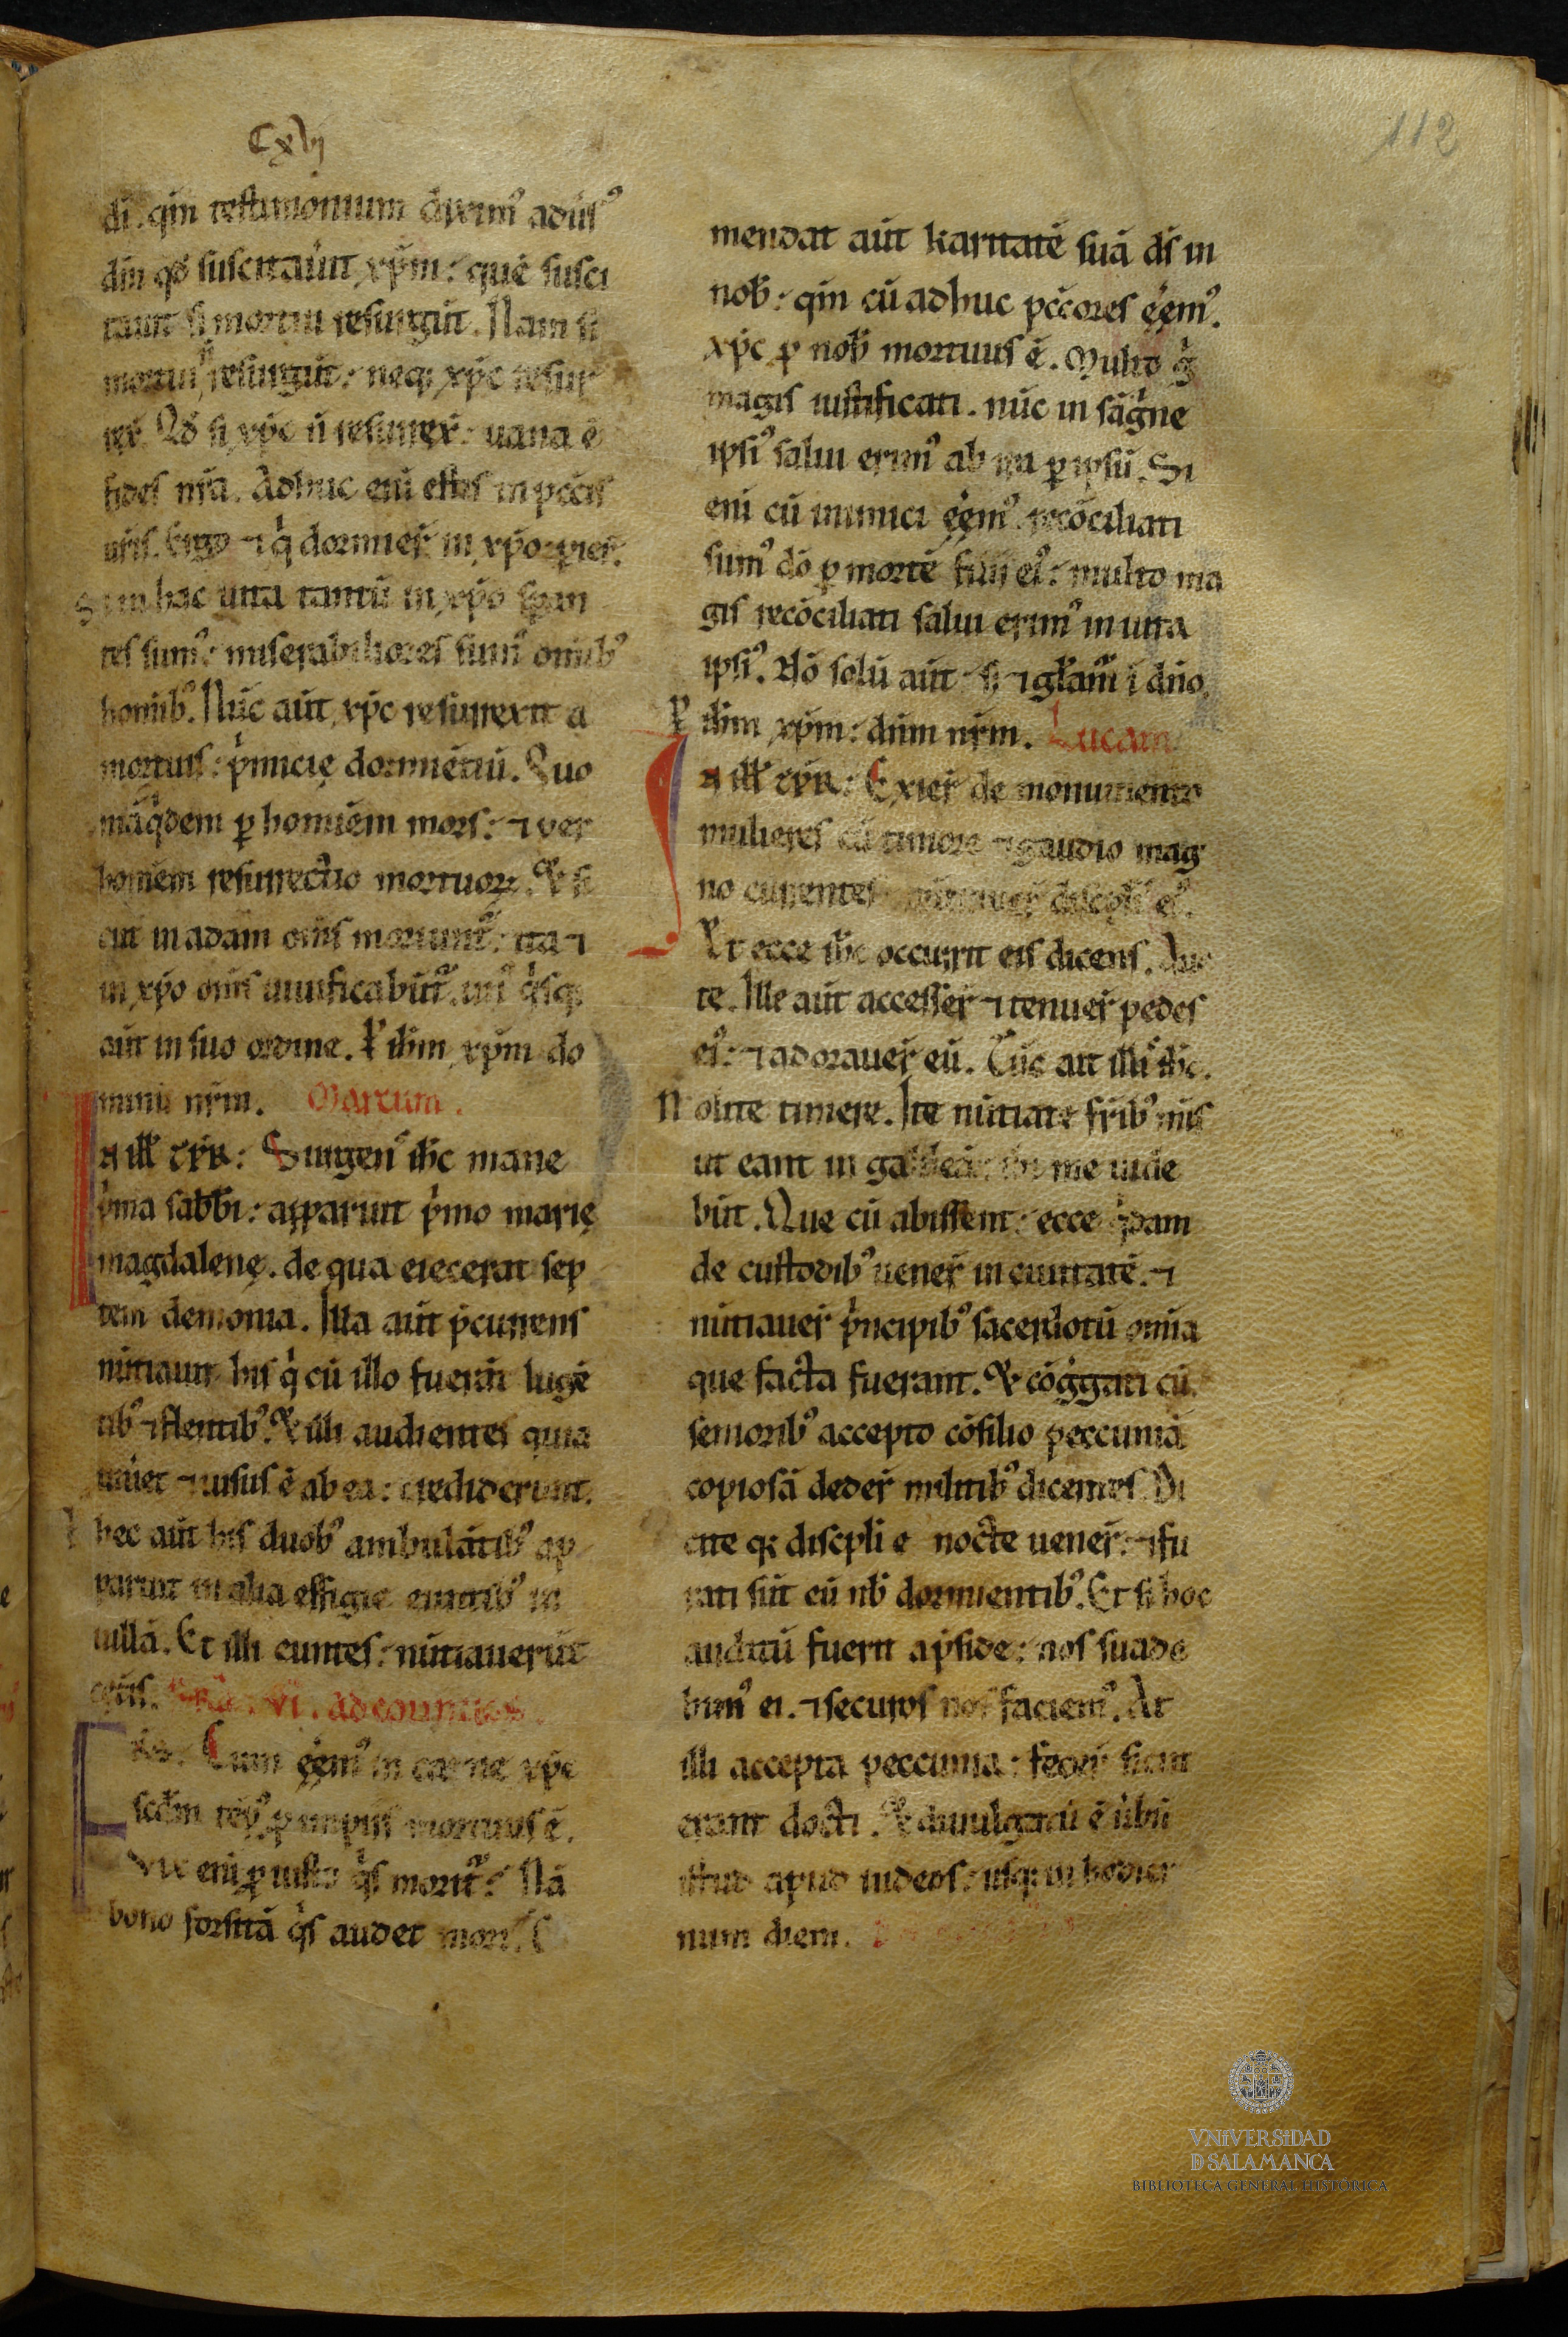 Cxvj
112
di. qm̄ testimonium dixim᷒ adūs᷒
dm̄ qd̓ suscitaūit xp̄m: quē susci
tauit si mortui resurgūt. Nam si
mortui n̄ resurgūt: neq; xp̄c resur
rex̄. Qd̓ si xp̄c n̄ resurrex̄: uana ē
fides nr̄a. Adhuc eni estis in pccīs
ur̄is. Ergo ⁊ qͥ dormier̄ in xp̄o: pier̄.
Si in hac uita tantū in xp̄o speran
tes sum᷒: miserabiliores sum᷒ omīb᷒
homīb᷒. Nūc aūt xp̄c resurrexit a
mortuis: pͥmicię dormiētiū. Quo
niā qͥdem ꝑ homiēm mors: ⁊ per
homiēm resurrectio mortuoꝝ. Et si
cut in adam om̄s moriunt᷑: ita ⁊
in xp̄o om̄s uiuificabūt᷑. un᷒ qͥsq;
aūt in suo ordine. P ih̄m xp̄m do
minū nr̄m. Marcum.
In ill̄ tp̄r: Surgens ih̄c mane
pͥma sabb̄i: apparuit pͥmo marię
magdalenę. de qua eiecerat sep
tem demonia. Illa aūt p̄currens
nūtiauit his qͥ cū illo fuerāt lugē
tib᷒ ⁊ flentib᷒. Et illi audientes quia
uiuet ⁊ uisus ē ab ea: crediderunt.
P hec aūt his duob᷒ ambulātib᷒ ap
paruit in alia effigie euntib᷒ in
uillā. Et illi euntes: nūtiauerūt
cet̄is. Fer̄ vi. ad corinthios.
Frēs. Cum eēm᷒ in carne xp̄c
scd̄m tēp᷒ ꝓ impiis mortuus ē.
Vix eni ꝓ iusto qͥs morit᷑: Nā
bono forsitā qͥs audet mori.
mendat aūt karitatē suā dī in
nob̄: qm̄ cū adhuc pccōres eēm᷒.
xp̄c ꝓ nob̄ mortuus ē. Multo gͦ
magis iustificati. nūc in sāgͥne
ipsi᷒ salui erim᷒ ab ira ꝑ ipsū. Si
eni cū inimici eēm᷒. recōciliati
sum᷒ dō ꝑ mortē filii ei᷒: multo ma
gis recōciliati salui erim᷒ in uita
ipsi᷒. Nō solū aūt: s; ⁊ glām᷑ ī dn̄o.
P ih̄m xp̄m: dūm nr̄m. Lucam.
In ill̄ tp̄r: Exier̄ de monumento
mulieres cū timore ⁊ gaudio mag
no currentes nūtiauer̄ discplīs ei᷒.
Et ecce ih̄c occurrit eis dicens. Aue
te. Ille aūt accesser̄ ⁊ tenuer̄ pedes
ei᷒: ⁊ adorauer̄ eū. Tūc ait illis ih̄c.
Nolite timere. Ite nūtiate fr̄ib᷒ mīs
ut eant in galileā: ibi me uide
būt. Que cū abissent: ecce qͥdam
de custodib᷒ uener̄ in ciuitatē. ⁊
nūtiauer̄ pͥncipib᷒ sacerdotū omīa
que facta fuerant. Et cōggati cū
senioribꝰ accepto cōsilio peccuniā
copiosā deder̄ militib᷒ dicentes. Di
cite q; discpli e nocte uener̄: ⁊ fu
rati sūt eū nb̄ dormientib᷒. Et si hoc
auditū fuerit ap̄side: nos suade
bim᷒ ei. ⁊ securos uos faciem᷒. At
illi accepta peccunia: fecer̄ sicut
erant docti. Et diuulgatū ē ūbū
istud apud iudeos: usq; in hodier
num diem.
VNIVERSIDAD
D SALAMANCA
BIBLIOTECA GENERAL HISTÓRICA